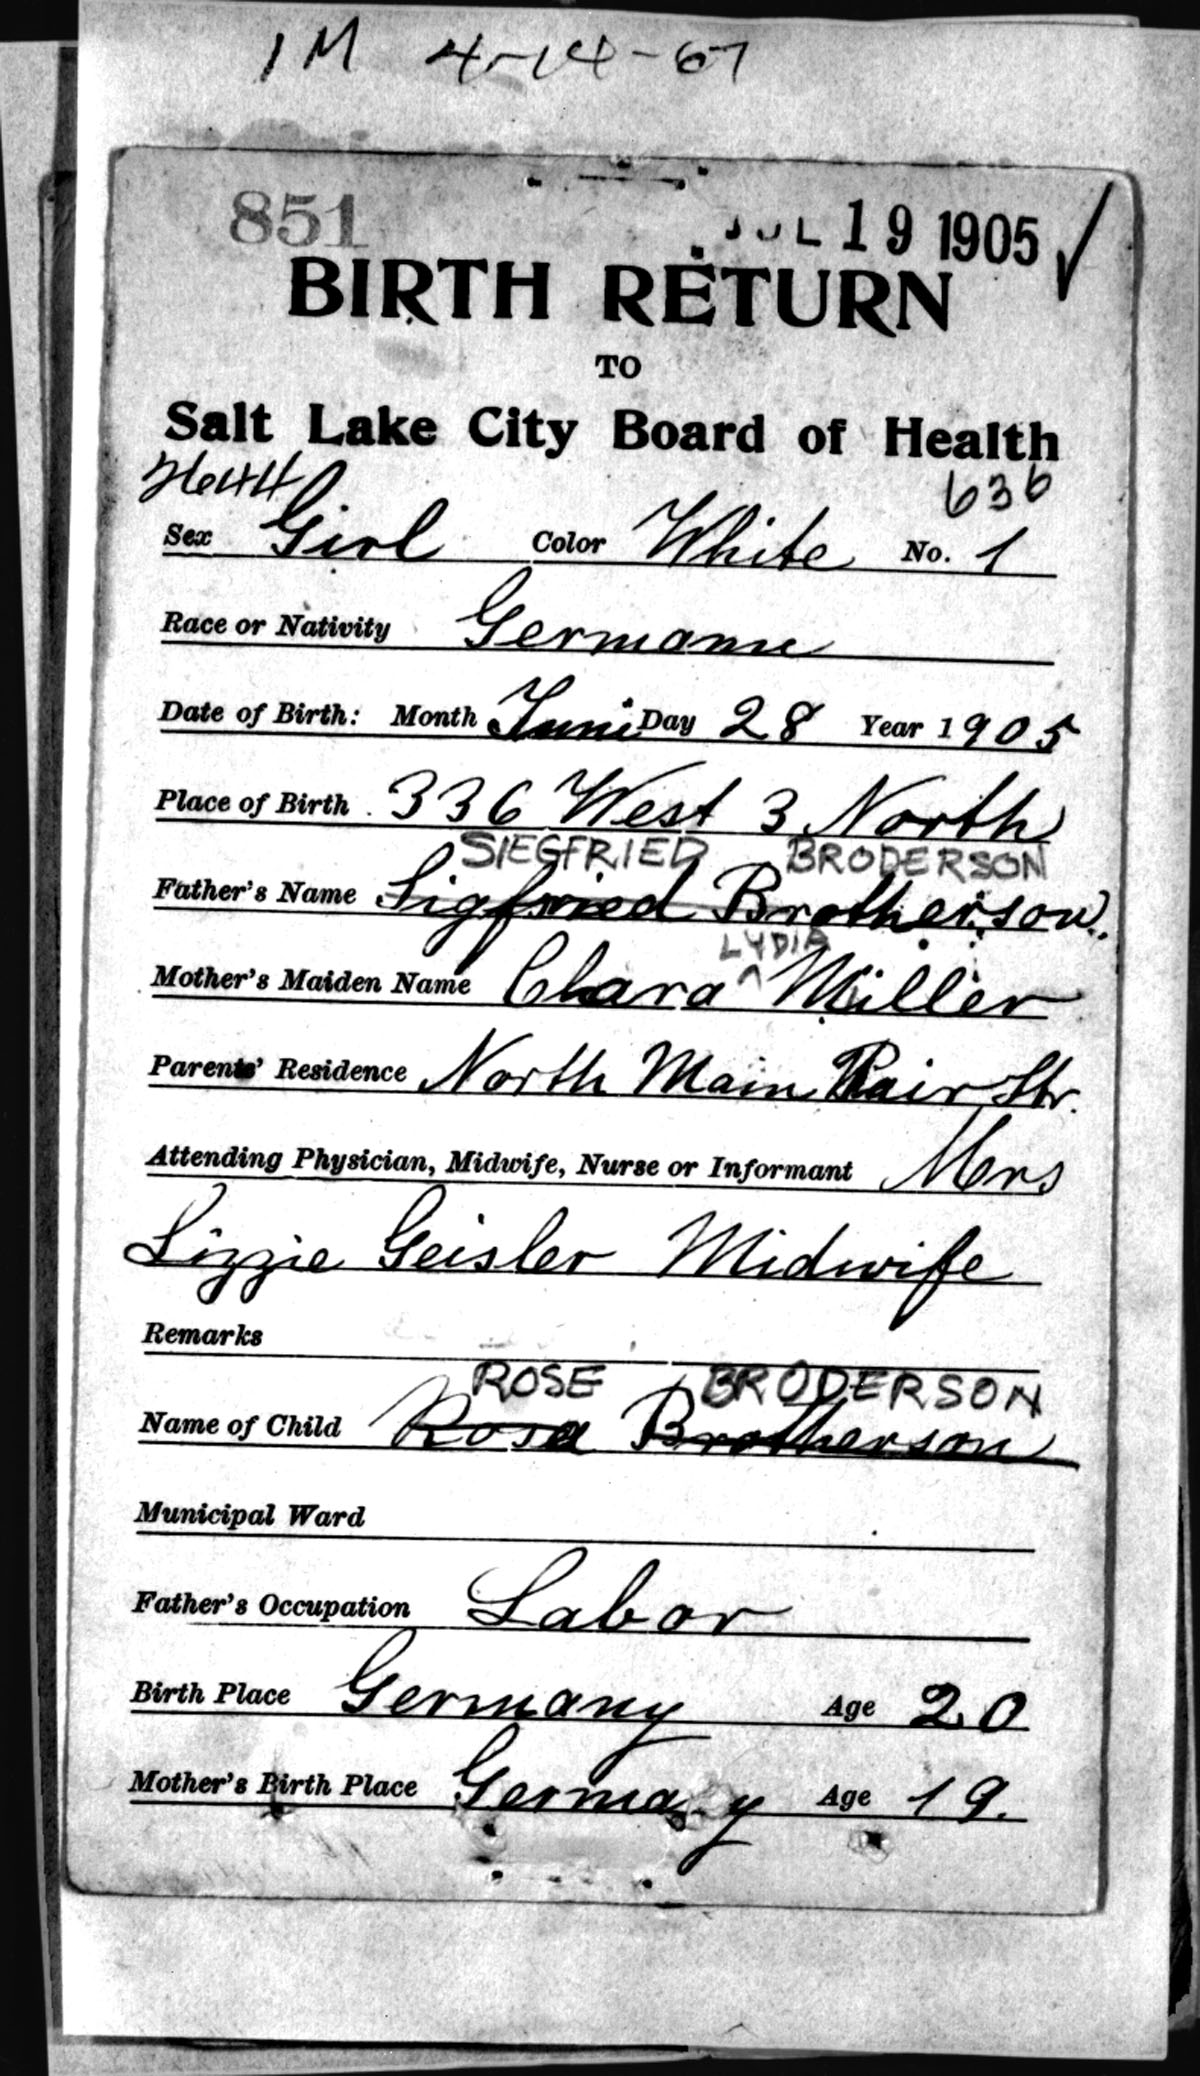 1 M 4-14-67
851 JUL 19 1905 ✓
BIRTH RETURN
TO
Salt Lake City Board of Health
2644 636
Sex Girl Color White No. 1
Race or Nativity Germanu
Date of Birth: Month Juni Day 28 Year 1905
Place of Birth 336 West 3 North
SIEGFRIED BRODERSON
Father's Name Sigfried Brotherson.
LYDIA
Mother's Maiden Name Clara ^ Miller
Parents' Residence North Main Str.
Attending Physician, Midwife, Nurse or Informant Mrs
Lizzie Geisler Midwife
Remarks
ROSE BRODERSON
Name of Child Rosa Brotherson
Municipal Ward
Father's Occupation Labor
Birth Place Germany Age 20
Mother's Birth Place Germany Age 19.